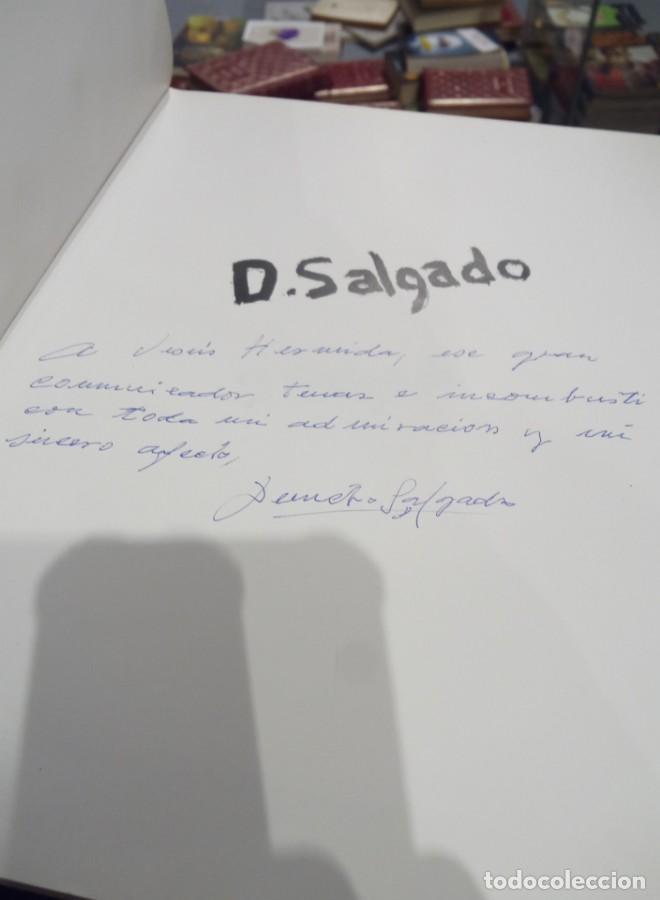 D. Salgado
A Jesús Hermida, ese gran
comunicador tenaz e incombusti
con toda mi admiracion y mi
sincero afecto,
Demetrio Salgado
todocoleccion